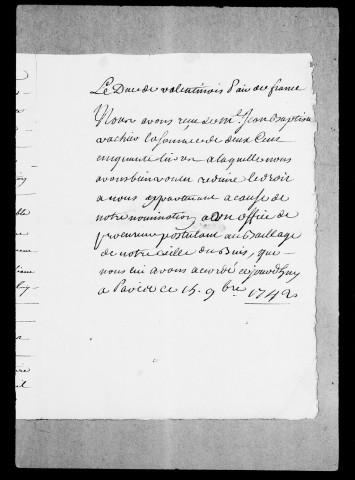 Le Duc de valentinois Pair de france
Nous avons reçu de mr. Jean Baptiste
vachier la somme de deux Cent
cinquante livres a laquelle nous
avons bien voulu reduire le droit
a nous appartenant a cause de
notre nomination a un office de
procureur postulant au Baillage
de notre ville du Buis, que
nous lui avons acordé cejourdhuy
a Paris ce 15. 9bre. 1742